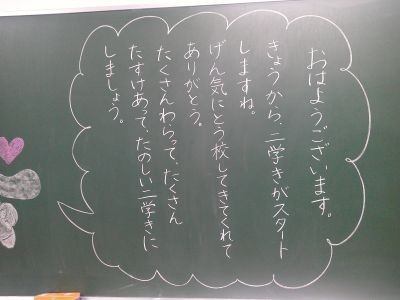 おはようございます。
きょうから、二学きがスタート
しますね。
げん気にとう校してきてくれて
ありがとう。
たくさんわらって、たくさん
たすけあって、たのしい二学きに
しましょう。